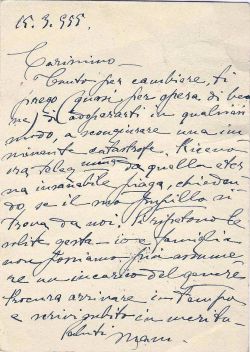 15.3.955.
Carissimo -
Tanto per cambiare, ti
prego (quasi per opera di be
ne) di adoprarti in qualsiasi
modo, a scongiurare una im
minente catastrofe. Ricevo
ora da quella eter
na insanabile piaga, chieden
do, se il suo pupillo si
trova da noi. Si ripetono le
solite gesta - io e famiglia
non possiamo più assume
re un incarico del genere
procura arrivare in tempo
e scrivi subito in merito
Saluti